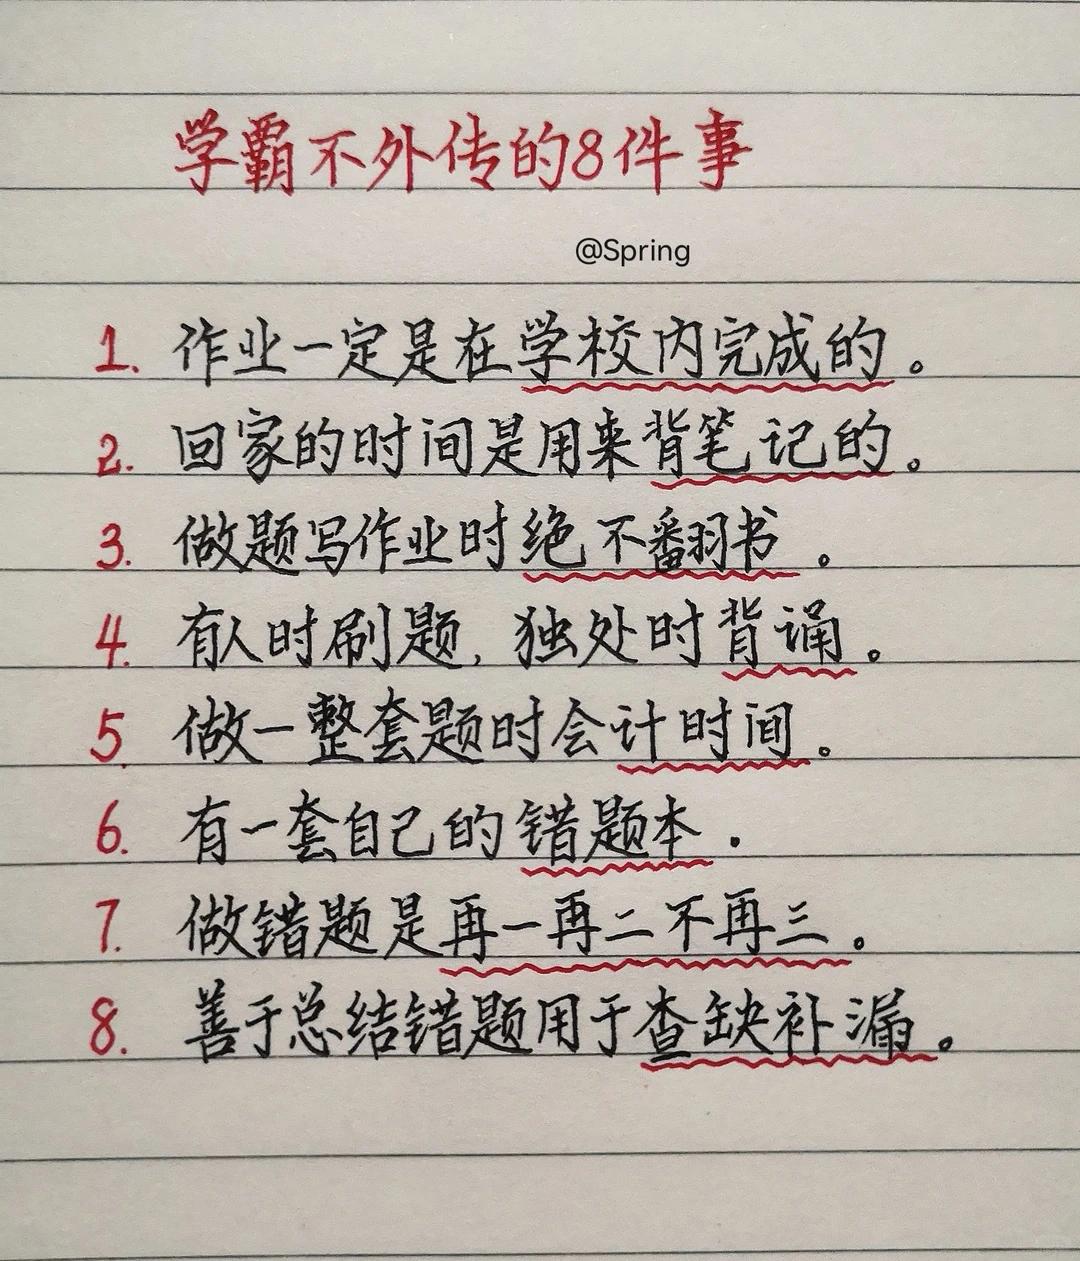 学霸不外传的8件事
@Spring
1. 作业一定是在学校内完成的。
2. 回家的时间是用来背笔记的。
3. 做题写作业时绝不翻书。
4. 有人时刷题，独处时背诵。
5. 做一整套题时会计时间。
6. 有一套自己的错题本.
7. 做错题是再一再二不再三。
8. 善于总结错题用于查缺补漏。